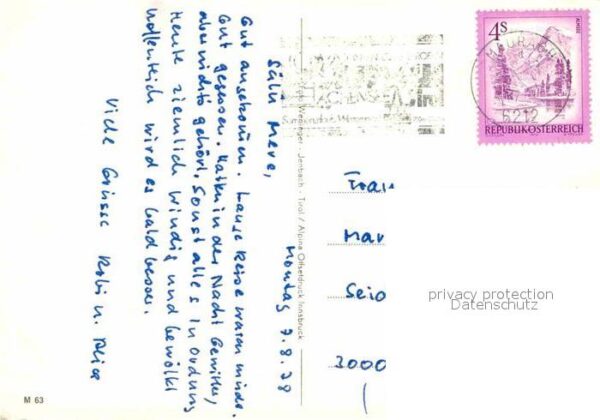 Montag 7.8.78
Salü Mere,
Gut angekommen. Lange Reise waren müde.
Gut gegessen. Hatten in der Nacht Gewitter,
aber nichts gehört. Sonst alles in Ordnung
Heute ziemlich windig und bewölkt
hoffentlich wird es bald besser.
Viele Grüsse Robi u. Alice
Wedninger - Jenbach - Tirol / Alpina Offsetdruck Innsbruck
4S
ALMSEE
REPUBLIK ÖSTERREICH
MAURACH
6212
ACHENSEE
Frau
Mar
Seid
3000
privacy protection
Datenschutz
M 63